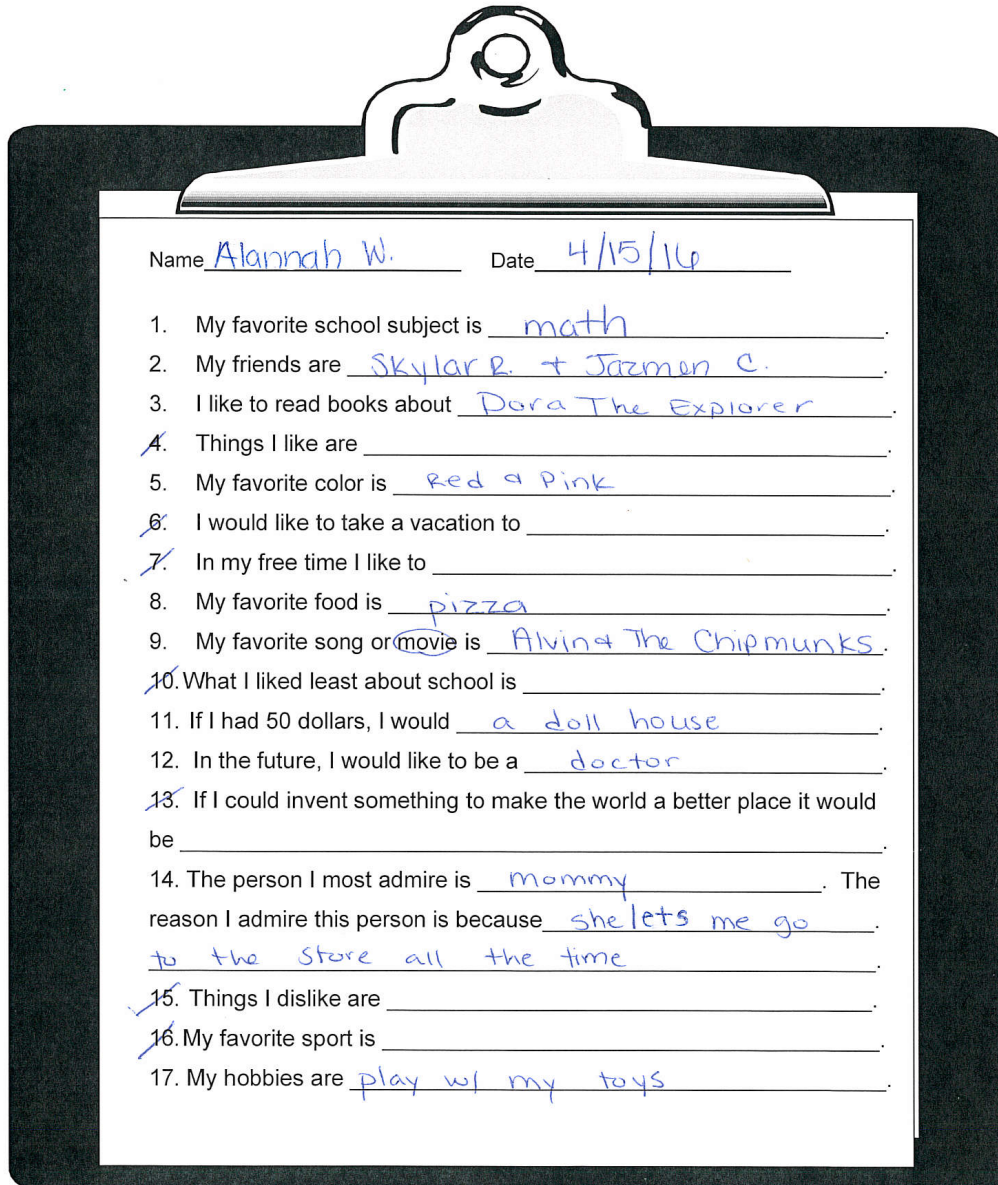 Name Alannah W. Date 4/15/16
1. My favorite school subject is math.
2. My friends are Skylar R. + Jazmen C.
3. I like to read books about Dora The Explorer.
4. Things I like are.
5. My favorite color is Red & Pink.
6. I would like to take a vacation to.
7. In my free time I like to.
8. My favorite food is pizza.
9. My favorite song or movie is Alvin & The Chipmunks.
10. What I liked least about school is.
11. If I had 50 dollars, I would a doll house.
12. In the future, I would like to be a doctor.
13. If I could invent something to make the world a better place it would
be.
14. The person I most admire is mommy. The
reason I admire this person is because she lets me go.
to the store all the time.
15. Things I dislike are.
16. My favorite sport is.
17. My hobbies are play w/ my toys.